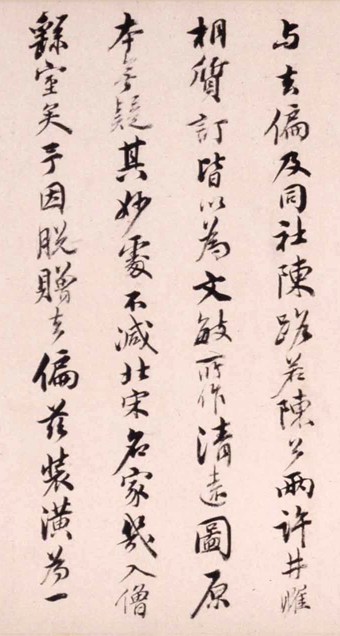 与玄偏及同社陳路若陳公兩許井暀
相質訂皆以為文敏所作清遠圖原
本無疑其妙處不減北宋名家幾入僧
繇室矣予因脫贈玄偏茲裝潢為一